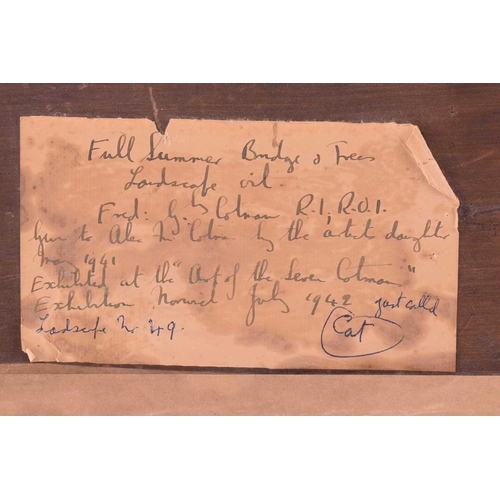 Full Summer Bridge & Trees
Landscape oil.
Fred: G. Cotman R.I, R.O.I.
Given to Alec M Cotman by the artist's daughter
May 1941
Exhibited at the "Art of the Seven Cotmans"
Exhibition Norwich July 1942 just called
Landscape No 49. Cat